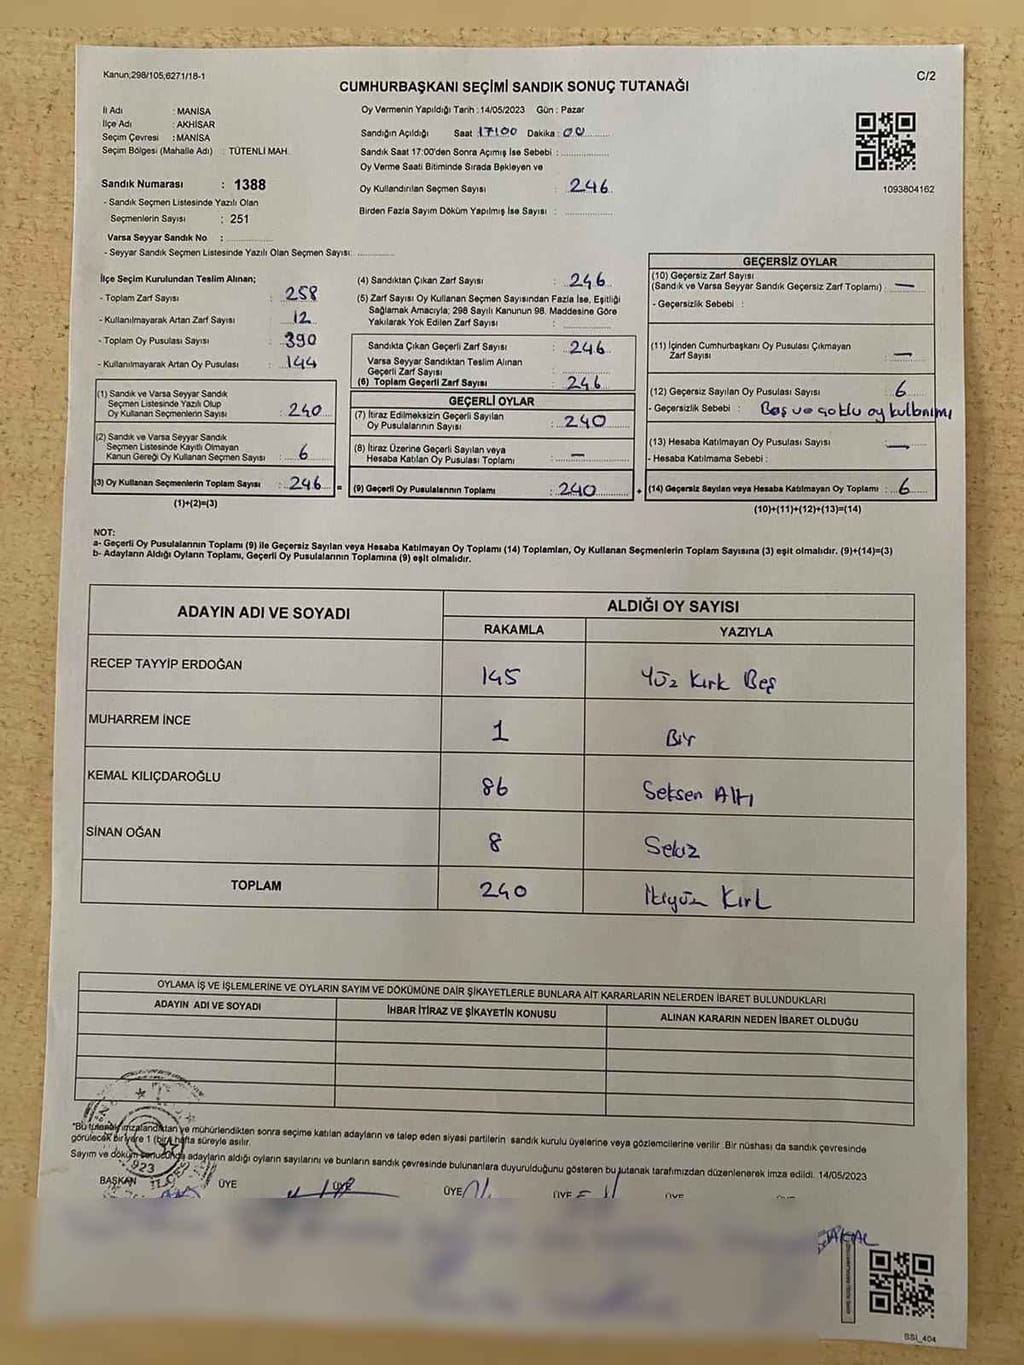 Kanun;298/105;6271/18-1
C/2
CUMHURBAŞKANI SEÇİMİ SANDIK SONUÇ TUTANAĞI
İl Adı : MANİSA
İlçe Adı : AKHİSAR
Seçim Çevresi : MANİSA
Seçim Bölgesi (Mahalle Adı) : TÜTENLİ MAH.
Sandık Numarası : 1388
- Sandık Seçmen Listesinde Yazılı Olan
Seçmenlerin Sayısı : 251
Varsa Seyyar Sandık No :
- Seyyar Sandık Seçmen Listesinde Yazılı Olan Seçmen Sayısı:
Oy Vermenin Yapıldığı Tarih : 14/05/2023 Gün : Pazar
Sandığın Açıldığı Saat 17:00 Dakika : 00
Sandık Saat 17:00'den Sonra Açımış İse Sebebi :
Oy Verme Saati Bitiminde Sırada Bekleyen ve
Oy Kullandırılan Seçmen Sayısı : 246
Birden Fazla Sayım Döküm Yapılmış İse Sayısı :
1093804162
İlçe Seçim Kurulundan Teslim Alınan;
- Toplam Zarf Sayısı : 258
- Kullanılmayarak Artan Zarf Sayısı : 12
- Toplam Oy Pusulası Sayısı : 390
- Kullanılmayarak Artan Oy Pusulası : 144
(1) Sandık ve Varsa Seyyar Sandık
Seçmen Listesinde Yazılı Olup
Oy Kullanan Seçmenlerin Sayısı : 240
(2) Sandık ve Varsa Seyyar Sandık
Seçmen Listesinde Kayıtlı Olmayan
Kanun Gereği Oy Kullanan Seçmen Sayısı : 6
(3) Oy Kullanan Seçmenlerin Toplam Sayısı : 246 =
(1)+(2)=(3)
(4) Sandıktan Çıkan Zarf Sayısı : 246
(5) Zarf Sayısı Oy Kullanan Seçmen Sayısından Fazla İse, Eşitliği
Sağlamak Amacıyla; 298 Sayılı Kanunun 98. Maddesine Göre
Yakılarak Yok Edilen Zarf Sayısı :
Sandıkta Çıkan Geçerli Zarf Sayısı : 246
Varsa Seyyar Sandıktan Teslim Alınan
Geçerli Zarf Sayısı :
(6) Toplam Geçerli Zarf Sayısı : 246
GEÇERLİ OYLAR
(7) İtiraz Edilmeksizin Geçerli Sayılan
Oy Pusulalarının Sayısı : 240
(8) İtiraz Üzerine Geçerli Sayılan veya
Hesaba Katılan Oy Pusulası Toplamı : —
(9) Geçerli Oy Pusulalarının Toplamı : 240 +
GEÇERSİZ OYLAR
(10) Geçersiz Zarf Sayısı
(Sandık ve Varsa Seyyar Sandık Geçersiz Zarf Toplamı) : —
- Geçersizlik Sebebi :
(11) İçinden Cumhurbaşkanı Oy Pusulası Çıkmayan
Zarf Sayısı : —
(12) Geçersiz Sayılan Oy Pusulası Sayısı : 6
- Geçersizlik Sebebi : Boş ve çoklu oy kullanımı
(13) Hesaba Katılmayan Oy Pusulası Sayısı : —
- Hesaba Katılmama Sebebi :
(14) Geçersiz Sayılan veya Hesaba Katılmayan Oy Toplamı : 6
(10)+(11)+(12)+(13)=(14)
NOT:
a- Geçerli Oy Pusulalarının Toplamı (9) ile Geçersiz Sayılan veya Hesaba Katılmayan Oy Toplamı (14) Toplamları, Oy Kullanan Seçmenlerin Toplam Sayısına (3) eşit olmalıdır. (9)+(14)=(3)
b- Adayların Aldığı Oyların Toplamı, Geçerli Oy Pusulalarının Toplamına (9) eşit olmalıdır.
ADAYIN ADI VE SOYADI
ALDIĞI OY SAYISI
RAKAMLA YAZIYLA
RECEP TAYYİP ERDOĞAN 145 Yüz Kırk Beş
MUHARREM İNCE 1 Bir
KEMAL KILIÇDAROĞLU 86 Seksen Altı
SİNAN OĞAN 8 Sekiz
TOPLAM 240 İkiyüz Kırk
OYLAMA İŞ VE İŞLEMLERİNE VE OYLARIN SAYIM VE DÖKÜMÜNE DAİR ŞİKAYETLERLE BUNLARA AİT KARARLARIN NELERDEN İBARET BULUNDUKLARI
ADAYIN ADI VE SOYADI İHBAR İTİRAZ VE ŞİKAYETİN KONUSU ALINAN KARARIN NEDEN İBARET OLDUĞU
*Bu tutanak imzalandıktan ve mühürlendikten sonra seçime katılan adayların ve talep eden siyasi partilerin sandık kurulu üyelerine veya gözlemcilerine verilir. Bir nüshası da sandık çevresinde
görülecek bir yere 1 (bir) hafta süreyle asılır.
Sayım ve döküm sonucunda adayların aldığı oyların sayılarını ve bunların sandık çevresinde bulunanlara duyurulduğunu gösteren bu tutanak tarafımızdan düzenlenerek imza edildi. 14/05/2023
BAŞKAN ÜYE ÜYE ÜYE ÜYE ÜYE
BSI_404